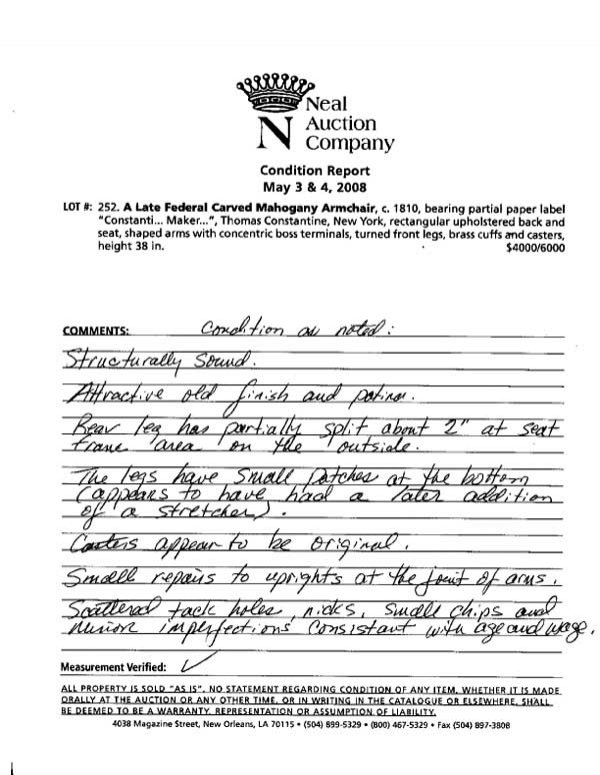 Neal
Auction
Company
N
Condition Report
May 3 & 4, 2008
LOT #: 252. A Late Federal Carved Mahogany Armchair, c. 1810, bearing partial paper label
"Constanti... Maker...", Thomas Constantine, New York, rectangular upholstered back and
seat, shaped arms with concentric boss terminals, turned front legs, brass cuffs and casters,
height 38 in. $4000/6000
COMMENTS: Condition as noted:
Structurally Sound.
Attractive old finish and patina.
Rear leg has partially split about 2" at seat
frame area on the outside.
The legs have small patches at the bottom
(appears to have had a later addition
of a stretcher).
Casters appear to be original.
Small repairs to uprights at the joint of arms.
Scattered tack holes, nicks, small chips and
minor imperfections consistant with age and usage.
Measurement Verified: ✓
ALL PROPERTY IS SOLD "AS IS". NO STATEMENT REGARDING CONDITION OF ANY ITEM, WHETHER IT IS MADE
ORALLY AT THE AUCTION OR ANY OTHER TIME, OR IN WRITING IN THE CATALOGUE OR ELSEWHERE, SHALL
BE DEEMED TO BE A WARRANTY, REPRESENTATION OR ASSUMPTION OF LIABILITY.
4038 Magazine Street, New Orleans, LA 70115 • (504) 899-5329 • (800) 467-5329 • Fax (504) 897-3808